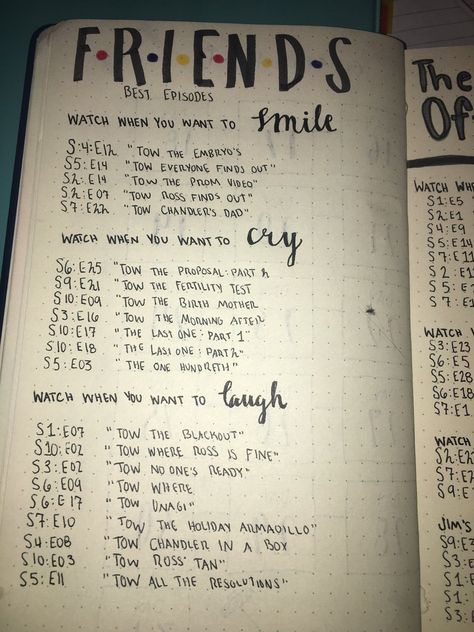 F•R•I•E•N•D•S
BEST EPISODES
WATCH WHEN YOU WANT TO smile
S:4:E12 "TOW THE EMBRYO'S
S5:E14 "TOW EVERYONE FINDS OUT"
S2:E14 "TOW THE PROM VIDEO"
S2:E07 "TOW ROSS FINDS OUT"
S7:E22 "TOW CHANDLER'S DAD"
WATCH WHEN YOU WANT TO cry
S6:E25 "TOW THE PROPOSAL: PART 2
S9:E21 "TOW THE FERTILITY TEST
S10:E09 "TOW THE BIRTH MOTHER
S3:E16 "TOW THE MORNING AFTER
S10:E17 "THE LAST ONE: PART 1"
S10:E18 "THE LAST ONE: PART 2"
S5:E03 "THE ONE HUNDRETH"
WATCH WHEN YOU WANT TO laugh
S1:E07 "TOW THE BLACKOUT"
S10:E02 "TOW WHERE ROSS IS FINE"
S3:E02 "TOW NO ONE'S READY"
S6:E09 "TOW WHERE
S6:E17 "TOW UNAGI"
S7:E10 "TOW THE HOLIDAY ARMADILLO"
S4:E08 "TOW CHANDLER IN A BOX
S10:E03 "TOW ROSS' TAN"
S5:E11 "TOW ALL THE RESOLUTIONS"
The
Of
WATCH WHE
S1:E5
S2:E1
S4:E9
S5:E1
S7:E11
S2:E1
S5:E
S7:E1
WATCH W
S3:E23
S6:E5
S5:E28
S6:E18
S7:E1
WATCH
S2:E2
S7:E2
S9:E
JIM'S
S9:E
S3:E
S1:E
S1:
S3: